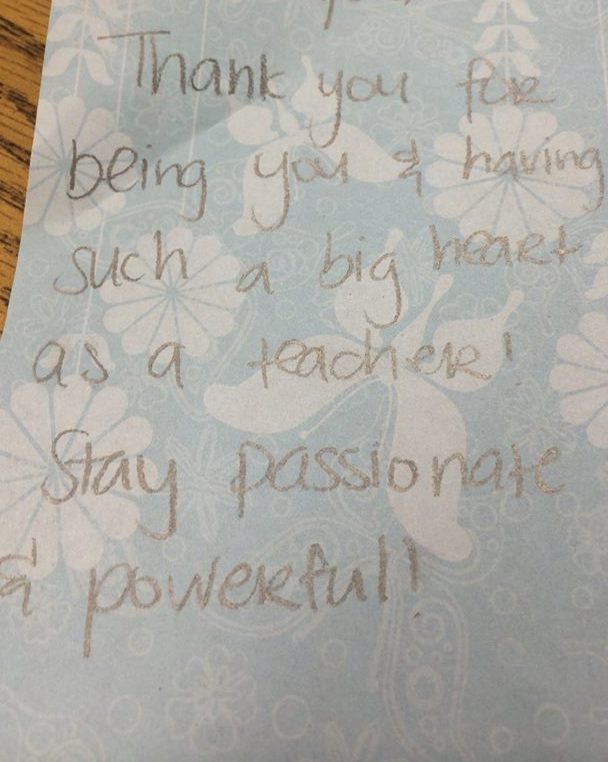 Thank you for
being you & having
such a big heart
as a teacher!
Stay passionate
& powerful!